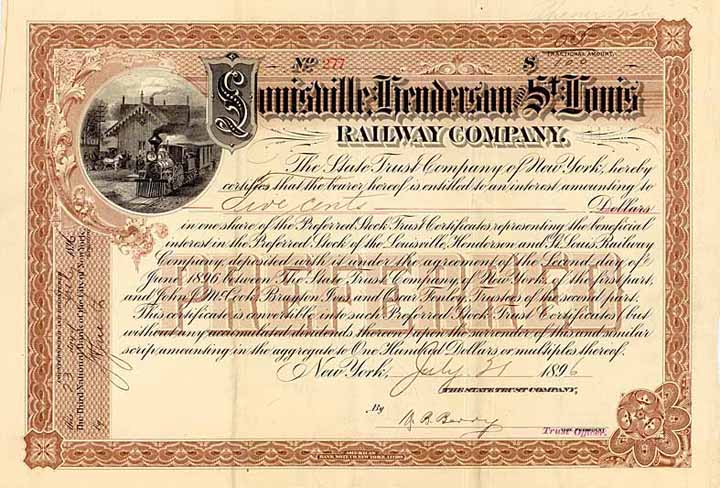 No. 277
$
FRACTIONAL AMOUNT.
Louisville, Henderson and St. Louis
RAILWAY COMPANY.
The State Trust Company of New York, hereby
certifies that the bearer hereof is entitled to an interest amounting to
Five cents Dollars
in one share of the Preferred Stock Trust Certificates representing the beneficial
interest in the Preferred Stock of the Louisville, Henderson and St. Louis Railway
Company deposited with it under the agreement of the Second day of
June 1896 between The State Trust Company of New York of the first part,
and John J. McCook, Brayton Ives and Oscar Fenley, Trustees of the second part.
This certificate is convertible into such Preferred Stock Trust Certificates, but
without any accumulated dividends thereon upon the surrender of this and similar
scrip amounting in the aggregate to One Hundred Dollars or multiples thereof.
PREFERRED
New York, July 21 1896
THE STATE TRUST COMPANY,
By
Trust Officer.
COUNTERSIGNED AND REGISTERED
The Third National Bank of the City of New York,
by
AMERICAN
BANK NOTE CO. NEW YORK.